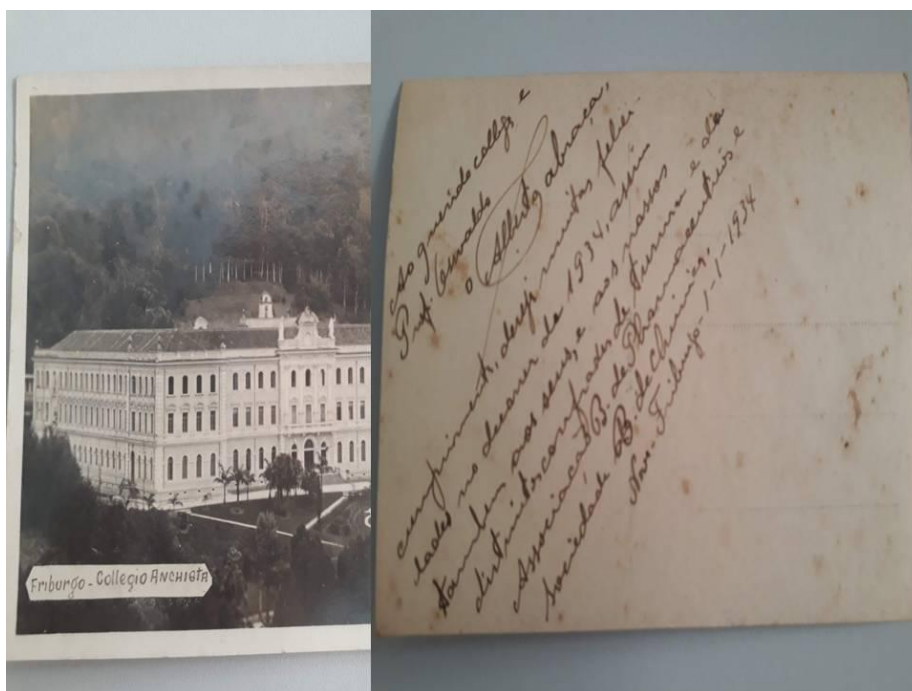 Friburgo - Collegio ANCHIETA
Ao querido collega e
Prof. Oswaldo
o Alberto abraça,
cumprimenta, deseja muitas felici-
dades no decorrer de 1934, assim
tambem aos seus, e aos nossos
distinctos confrades, de turma e da
Associação B. de Pharmaceuticos e
Sociedade B. de Chimica.
Nova Friburgo 1-1-1934